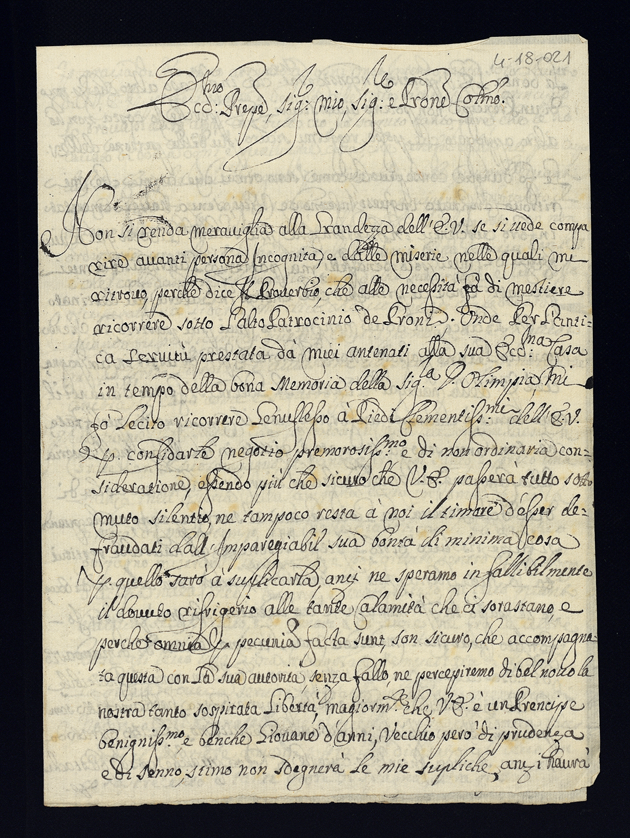 4-18-021
Ill.mo
Ecc.mo Prnpe, Sig.r mio, Sig.re e Prone Colmo.
Non si renda meraviglia alla Grandezza dell'E.V. se si uede compa
rire auanti persona Incognita e dalle miserie nelle quali mi
ritrouo, perche dice il Prouerbio, che alle necessità fà di mestiere
ricorrere sotto l'alto Patrocinio de Proni. Onde Per l'anti-
ca Seruitù prestata dà miei antenati alla sua Ecc.ma Casa
in tempo della bona Memoria della Sig.la D. Olimpia mi
fò lecito ricorrere genuflesso à Piedi Clementiss.mi dell'E.V.
e p. confidarle negotio premorosiss.mo e di non ordinaria con-
sideratione, essendo più che sicuro che V.E. passerà tutto sotto
muto silentio, ne tampoco resta à noi il timore d'esser de-
fraudati dall'Impareggiabil sua bontà di minima cosa
p. quello sarò a suplicarla, anzi ne speramo infallibilmente
il douuto rifrigerio alle tante calamità che ci sorastano, e
perche omnia p. pecunia facta sunt, son sicuro, che accompagna-
ta questa con la sua autorità, senza fallo ne percepiremo di bel nouo la
nostra tanto sospirata Libertà, magiorm.te che V.E. è un Prencipe
benigniss.mo e benche Giouane d'anni, Vecchio però di prudenza
e di senno, stimo non sdegnerà le mie supliche, anzi haurà